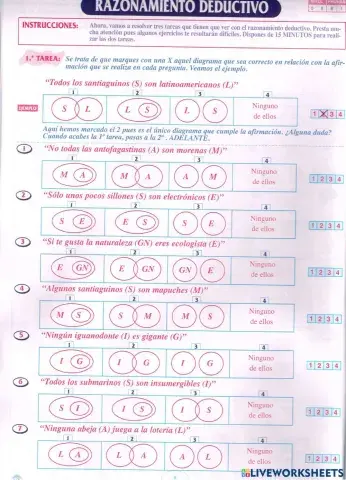 RAZONAMIENTO DEDUCTIVO
INSTRUCCIONES:
Ahora, vamos a resolver tres tareas que tienen que ver con el razonamiento deductivo. Presta mucha atención pues algunos ejercicios te resultarán difíciles. Dispones de 15 MINUTOS para realizar las dos tareas.
1.ª TAREA: Se trata de que marques con una X aquel diagrama que sea correcto en relación con la afirmación que se realiza en cada pregunta. Veamos el ejemplo.
"Todos los santiaguinos (S) son latinoamericanos (L)"
1 2 3 4
EJEMPLO
S L L S L S Ninguno de ellos
1 X 3 4
Aquí hemos marcado el 2 pues es el único diagrama que cumple la afirmación. ¿Alguna duda?
Cuando acabes la 1ª tarea, pasas a la 2ª. ADELANTE.
1 "No todas las antofagastinas (A) son morenas (M)"
1 2 3 4
M A M A A M Ninguno de ellos
1 2 3 4
2 "Sólo unos pocos sillones (S) son electrónicos (E)"
1 2 3 4
S E E S S E Ninguno de ellos
1 2 3 4
3 "Si te gusta la naturaleza (GN) eres ecologista (E)"
1 2 3 4
E GN E GN GN E Ninguno de ellos
1 2 3 4
4 "Algunos santiaguinos (S) son mapuches (M)"
1 2 3 4
M S S M M S Ninguno de ellos
1 2 3 4
5 "Ningún iguanodonte (I) es gigante (G)"
1 2 3 4
I G I G I G Ninguno de ellos
1 2 3 4
6 "Todos los submarinos (S) son insumergibles (I)"
1 2 3 4
S I I S I S Ninguno de ellos
1 2 3 4
7 "Ninguna abeja (A) juega a la lotería (L)"
1 2 3 4
L A L A A L Ninguno de ellos
1 2 3 4
LIVEWORKSHEETS